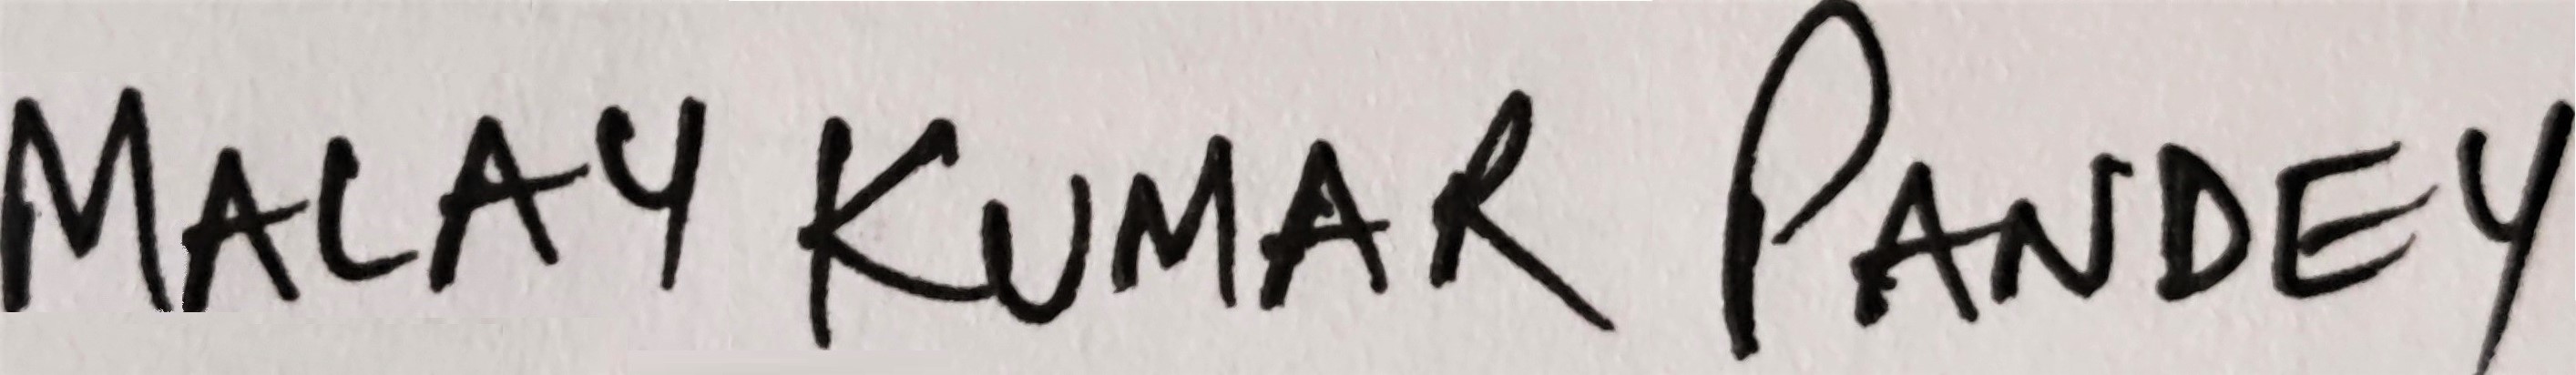 MALAY KUMAR PANDEY